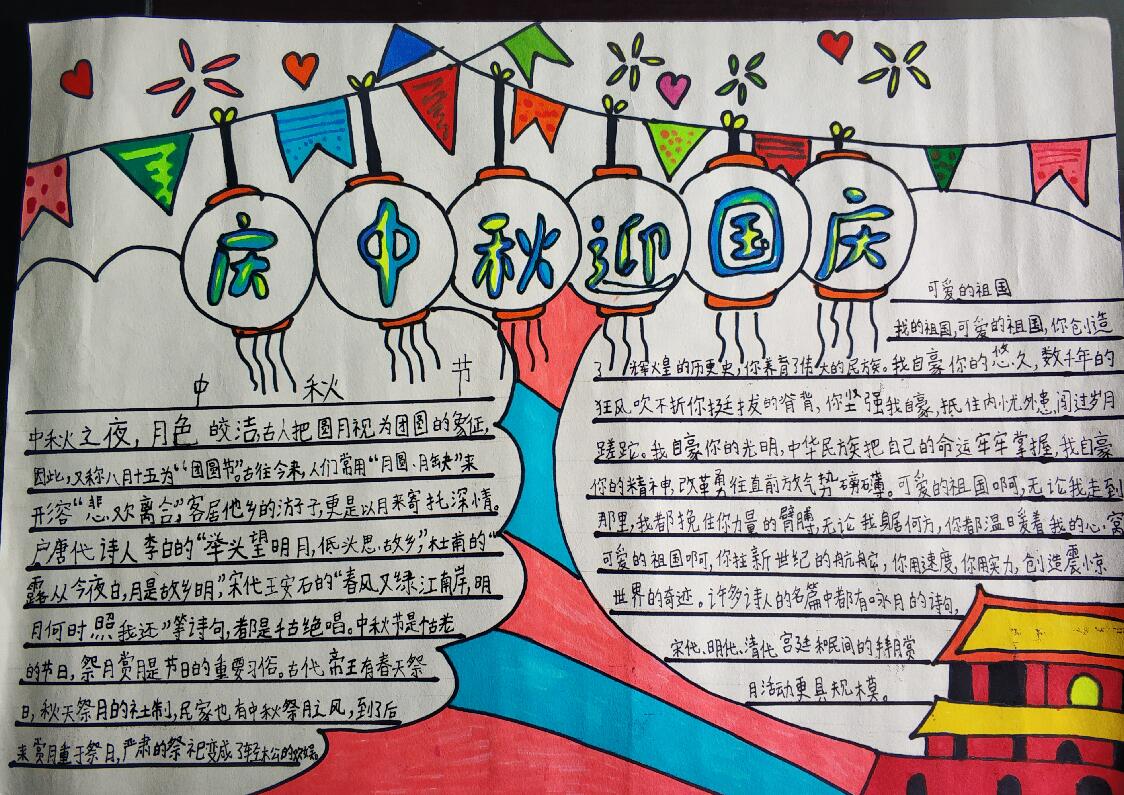 庆中秋迎国庆
中 秋 节
中秋之夜,月色 皎洁,古人把圆月视为团圆的象征,
因此,又称八月十五为“团圆节”。古往今来,人们常用“月圆、月缺”来
形容“悲欢离合”,客居他乡的游子,更是以月来寄托深情。
户唐代诗人李白的“举头望明月,低头思故乡”,杜甫的“
露从今夜白,月是故乡明”,宋代王安石的“春风又绿江南岸,明
月何时照我还”等诗句,都是千古绝唱。中秋节是古老
的节日,祭月赏月是节日的重要习俗。古代帝王有春天祭
日,秋天祭月的社制,民家也有中秋祭月之风,到了后
来赏月重于祭月,严肃的祭祀变成了轻松的欢娱。
可爱的祖国
我的祖国,可爱的祖国,你创造
了辉煌的历史,你养育了伟大的民族。我自豪你的悠久,数千年的
狂风吹不折你挺拔的脊背,你坚强我自豪,抵住内忧外患,闯过岁月
蹉跎。我自豪你的光明,中华民族把自己的命运牢牢掌握,我自豪
你的精神,改革勇往直前放气势磅礴。可爱的祖国啊,无论我走到
那里,我都挽住你力量的臂膊,无论我身居何方,你都温暖着我的心窝
可爱的祖国啊,你在新世纪的航船,你用速度,你用实力,创造震惊
世界的奇迹。许多诗人的名篇中都有咏月的诗句,
宋代、明代、清代宫廷和民间的拜月赏
月活动更具规模。